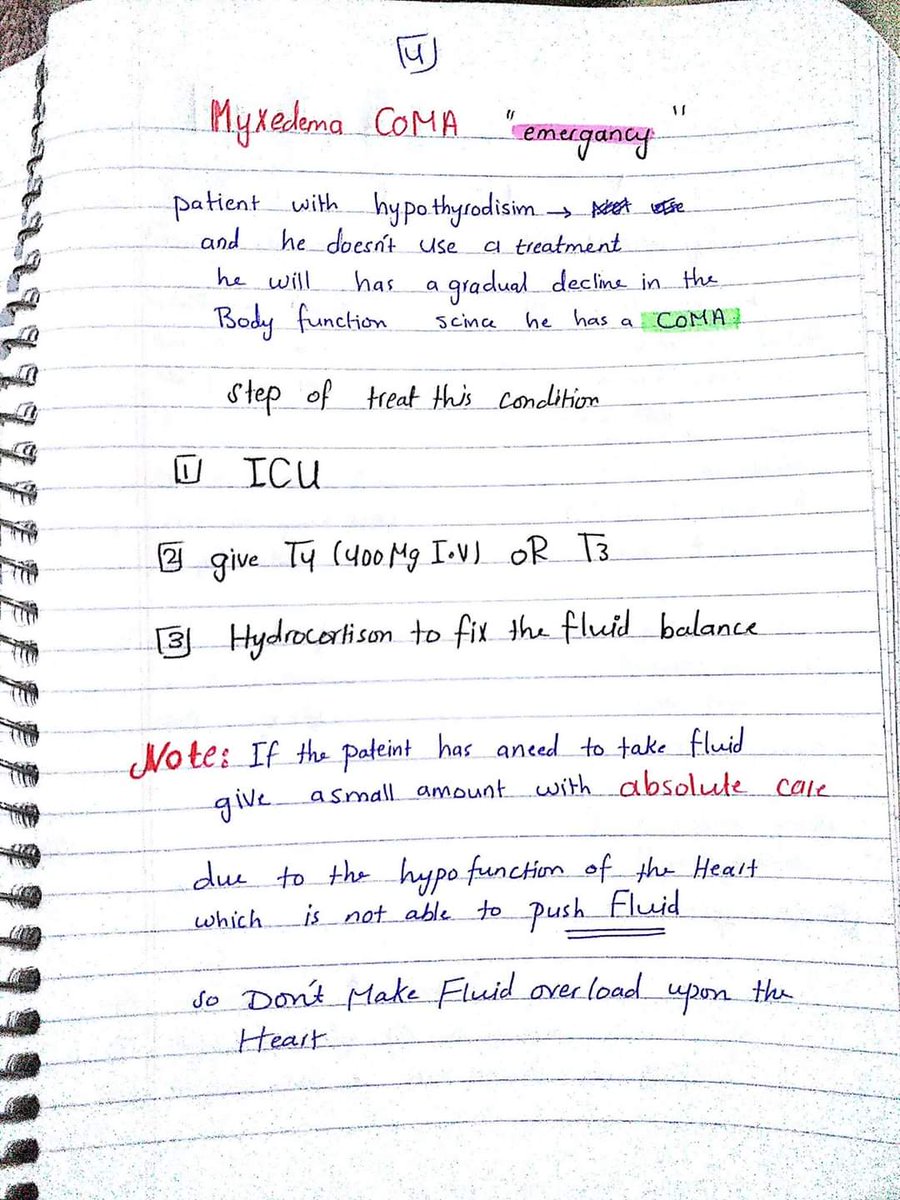 4
Myxedema COMA "emergancy"
patient with hypothyrodisim →
and he doesn't use a treatment
he will has a gradual decline in the
Body function scince he has a COMA
step of treat this condition
1 ICU
2 give T4 (400Mg I.V) OR T3
3 Hydrocortison to fix the fluid balance
Note: If the pateint has aneed to take fluid
give asmall amount with absolute care
due to the hypofunction of the Heart
which is not able to push Fluid
so Don't Make Fluid overload upon the
Heart